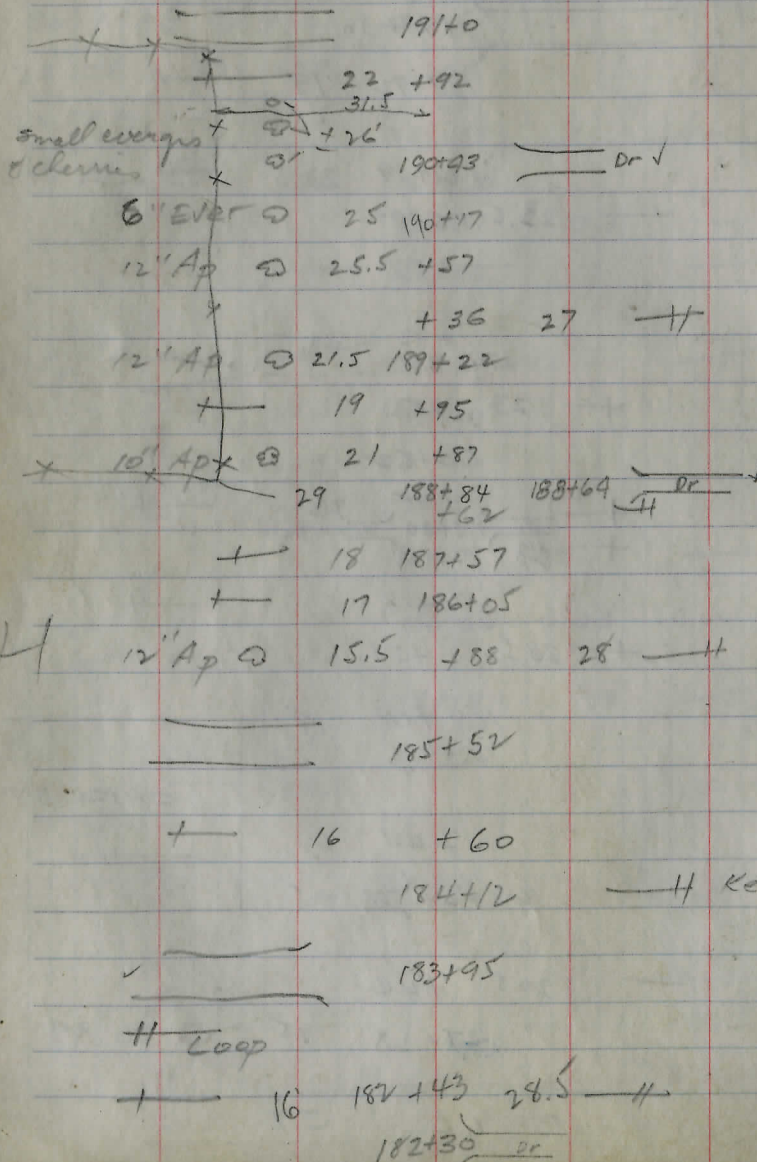 191+0
22 +92
31.5
small evergrs +26
& cherries 190+43 Dr
6" Ever 25 190+17
12" Ap 25.5 +57
+36 27
12" Ap 21.5 189+22
19 +95
10" Ap 21 +87
29 188+84 188+64 Dr
+62
18 187+57
17 186+05
12" Ap 15.5 +88 28
185+52
16 +60
184+12
183+95
Loop
16 182+43 28.5
182+30 Dr